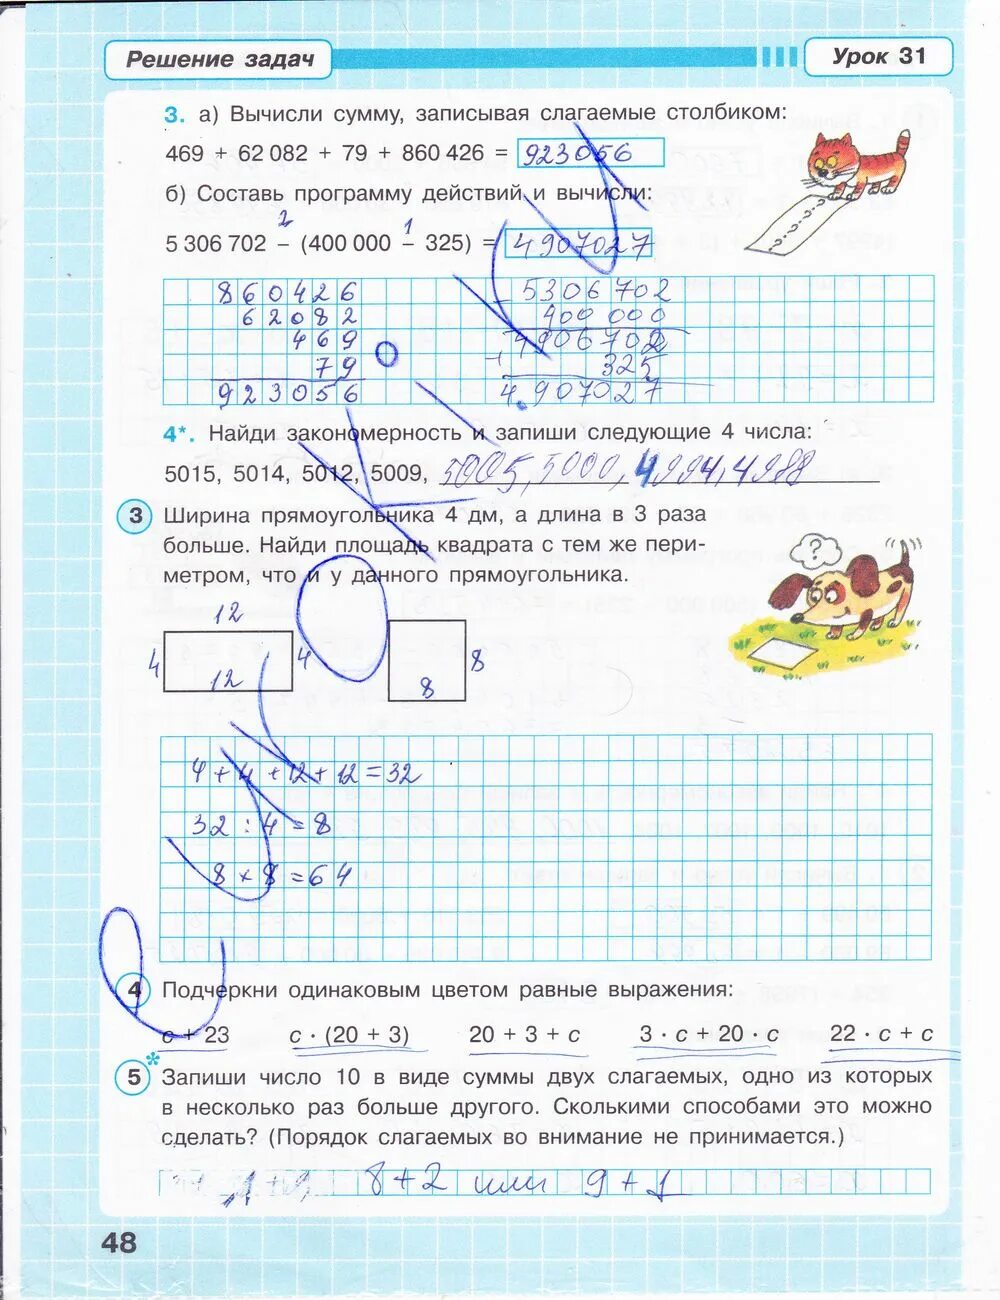 Решение задач
Урок 31
3. а) Вычисли сумму, записывая слагаемые столбиком:
469 + 62 082 + 79 + 860 426 = 923056
б) Составь программу действий и вычисли:
2 1
5 306 702 – (400 000 – 325) = 4907027
860426
62082
469
79
923056
- 5306702
400 000
4906702
+ 325
4.907027
4*. Найди закономерность и запиши следующие 4 числа:
5015, 5014, 5012, 5009, 5005, 5000, 4994, 4988
3 Ширина прямоугольника 4 дм, а длина в 3 раза
больше. Найди площадь квадрата с тем же пери-
метром, что и у данного прямоугольника.
?
12
4 4
12
8
8
4 + 4 + 12 + 12 = 32
32 : 4 = 8
8 × 8 = 64
4 Подчеркни одинаковым цветом равные выражения:
c + 23 c · (20 + 3) 20 + 3 + c 3 · c + 20 · c 22 · c + c
5* Запиши число 10 в виде суммы двух слагаемых, одно из которых
в несколько раз больше другого. Сколькими способами это можно
сделать? (Порядок слагаемых во внимание не принимается.)
8+2 или 9+1
48